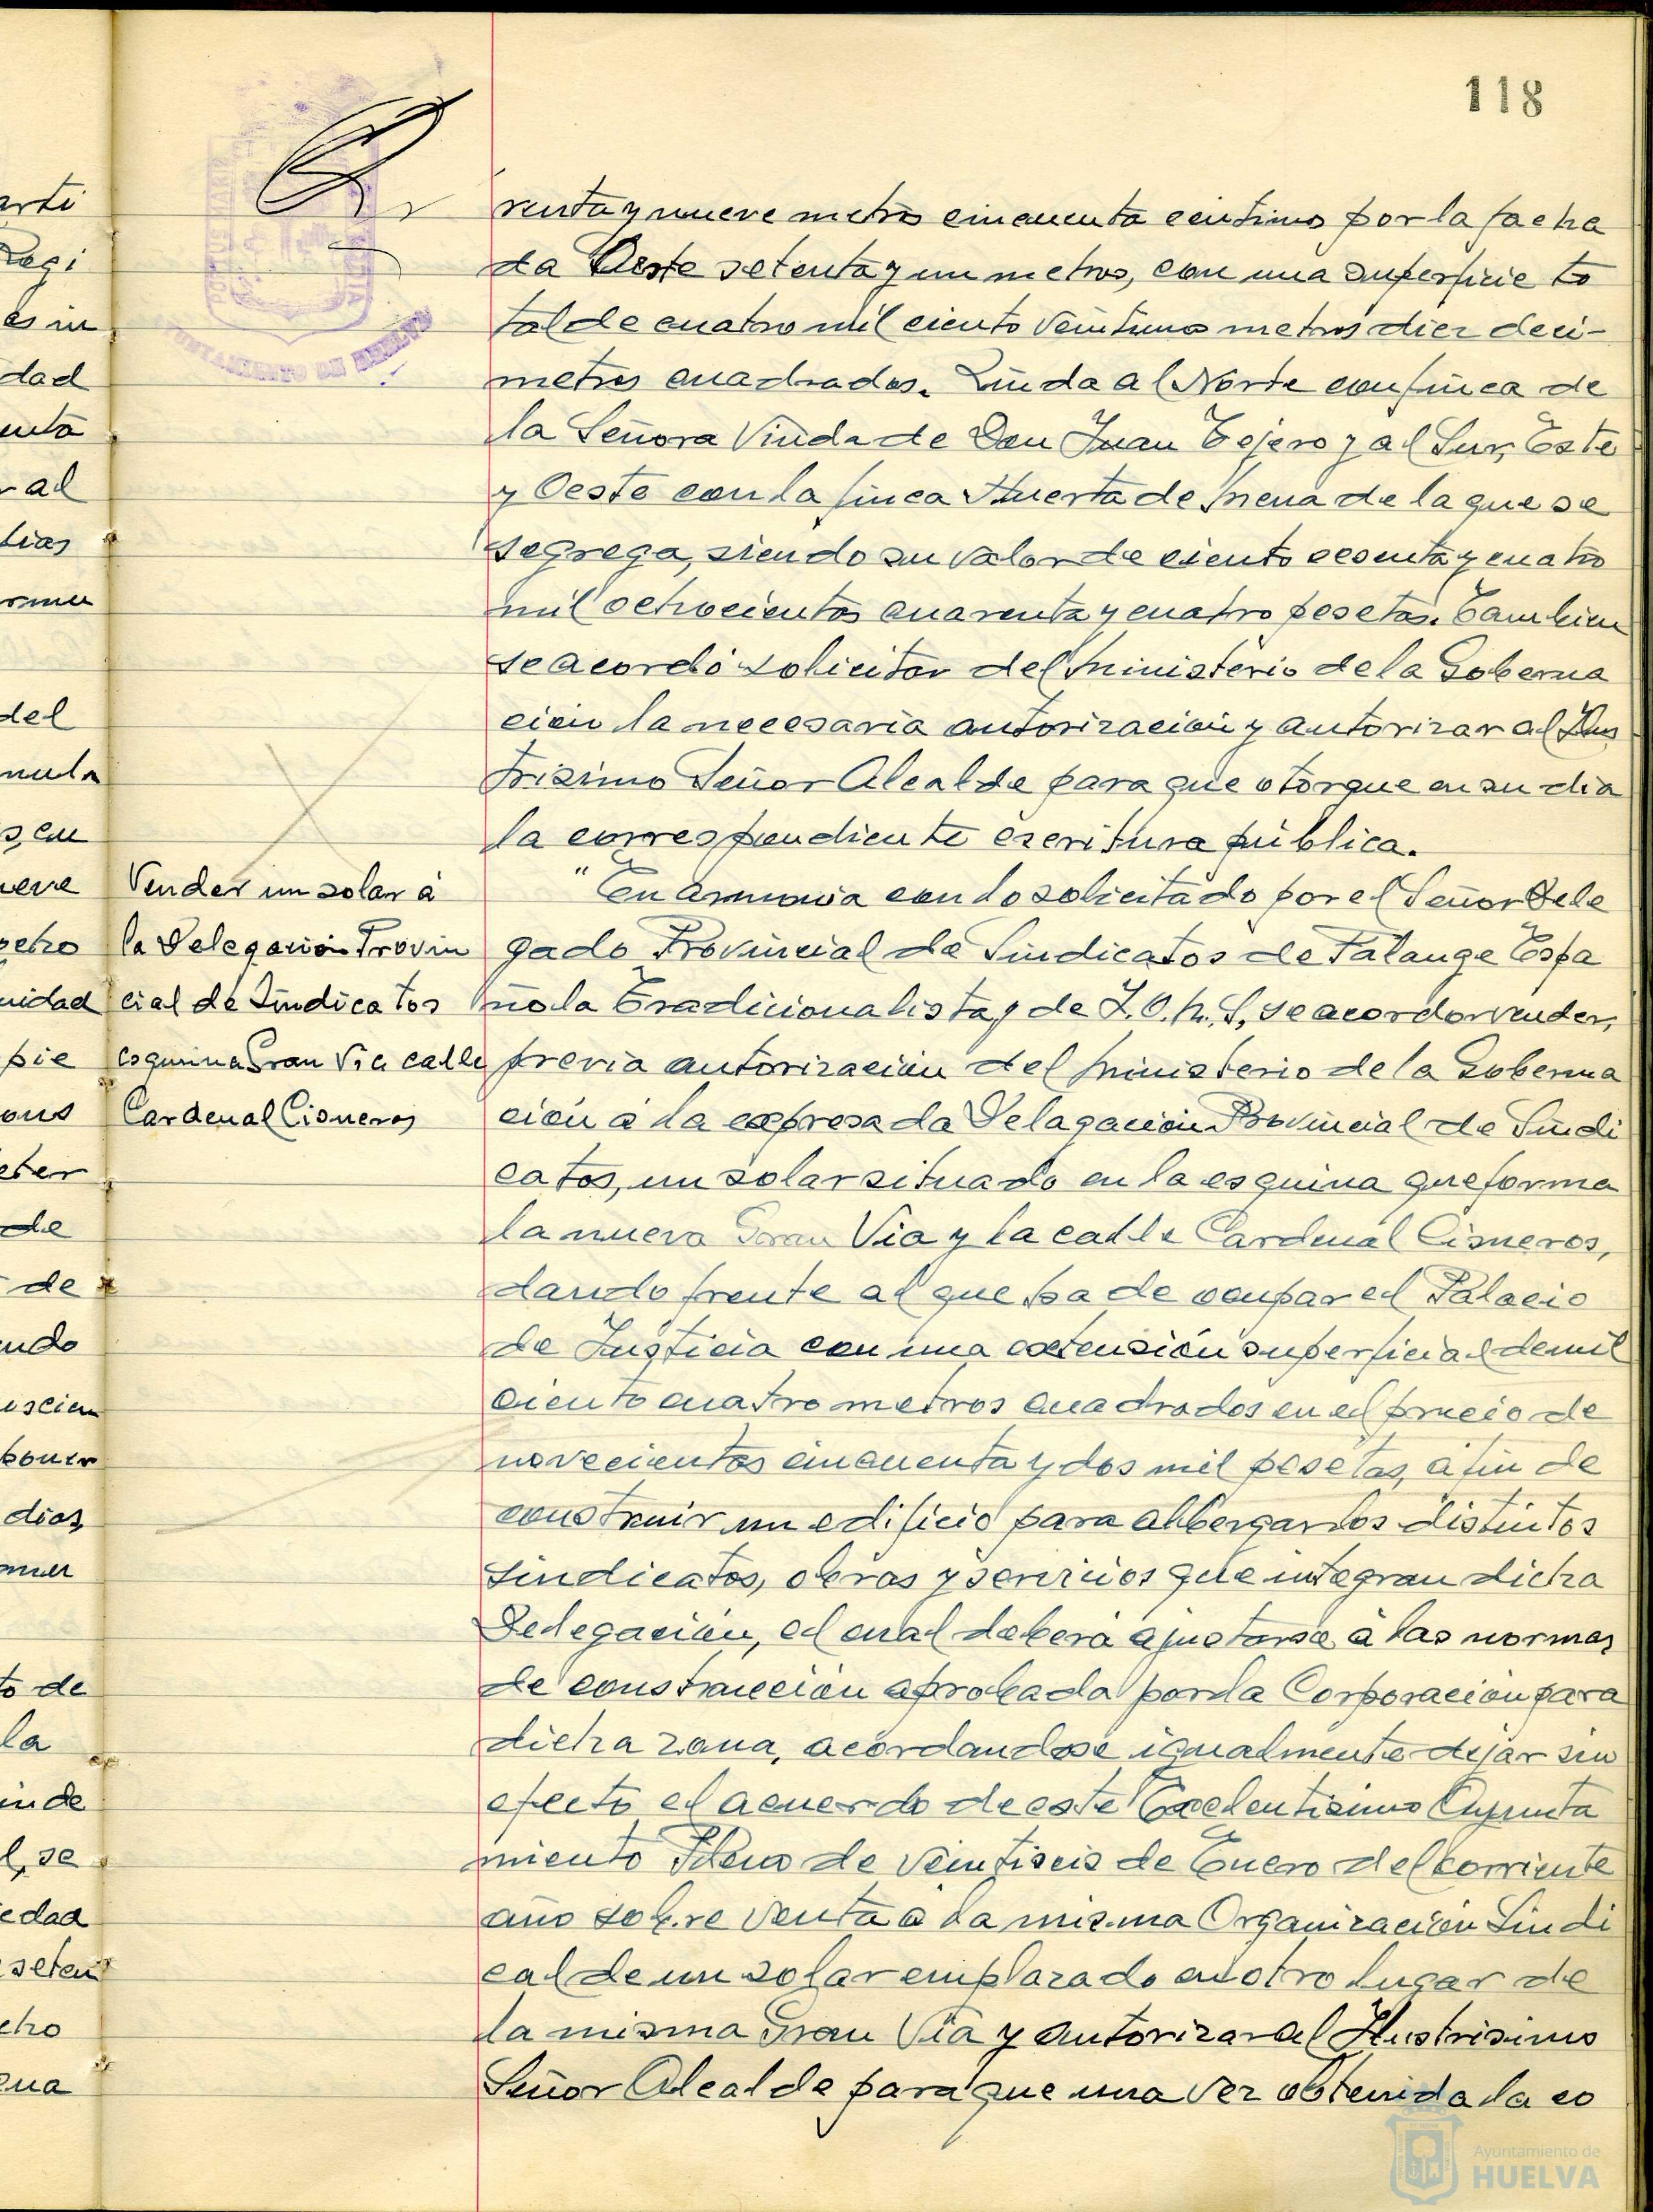 118
renta y nueve metros cincuenta centimos por la facha
da Oeste setenta y un metros, con una superficie to
tal de cuatro mil ciento veintiuno metros diez deci-
metros cuadrados. Linda al Norte con finca de
la Señora Viuda de Don Juan Tejero y al Sur, Este
y Oeste con la finca Huerta de Mena de la que se
segrega, siendo su valor de ciento sesenta y cuatro
mil ochocientos cuarenta y cuatro pesetas. Tambien
se acordó solicitar del Ministerio de la Goberna
ción la necesaria autorización y autorizar al Ilus
trisimo Señor Alcalde para que otorgue en su dia
la correspondiente escritura pública.
"En armonia con lo solicitado por el Señor Dele
gado Provincial de Sindicatos de Falange Espa
ñola Tradicionalista y de J.O.N.S, se acordo vender,
previa autorización del Ministerio de la Goberna
ción a la expresada Delegación Provincial de Sindi
catos, un solar situado en la esquina que forma
la nueva Gran Via y la calle Cardenal Cisneros,
dando frente al que ha de ocupar el Palacio
de Justicia con una extensión superficial de mil
ciento cuatro metros cuadrados en el precio de
novecientas cincuenta y dos mil pesetas, a fin de
construir un edificio para albergar los distintos
sindicatos, obras y servicios que integran dicha
Delegación, el cual deberá ajustarse a las normas
de construcción aprobada por la Corporación para
dicha zona, acordandose igualmente dejar sin
efecto el acuerdo de este Excelentisimo Ayunta
miento Pleno de veintiseis de Enero del corriente
año sobre venta a la misma Organización Sindi
cal de un solar emplazado en otro lugar de
la misma Gran Via y autorizar al Ilustrisimo
Señor Alcalde para que una vez obtenida la co
Vender un solar a
la Delegación Provin
cial de Sindicatos
esquina Gran Via calle
Cardenal Cisneros
arti
Regi
es in
dad
enta
al
dias
del
s, en
ueve
ocho
nidad
pie
ons
eter
de
de
ndo
dias,
to de
la
l, se
edad
seten
cho
AYUNTAMIENTO DE HUELVA
Ayuntamiento de
HUELVA